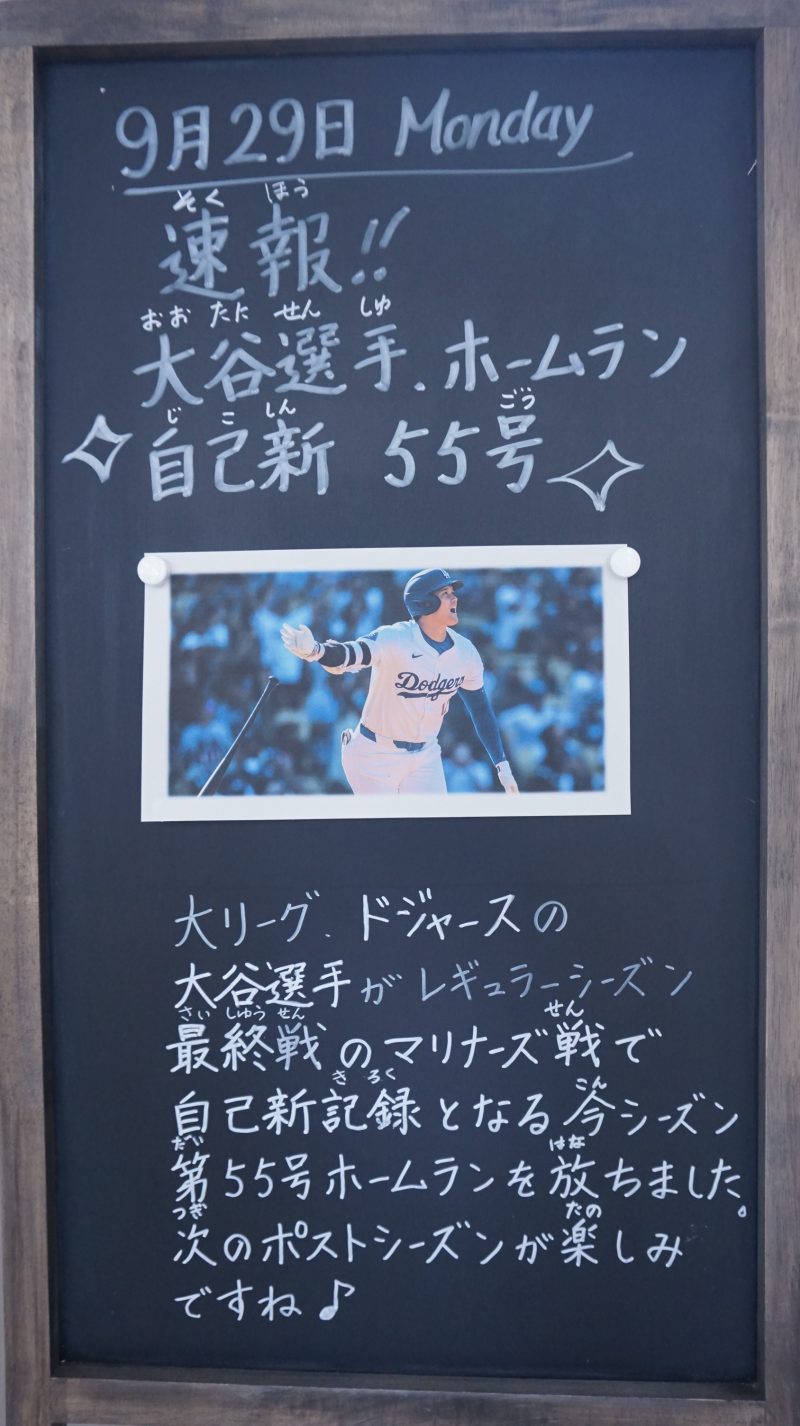 9月29日 Monday
そく ほう
速報!!
おお たに せん しゅ
大谷選手、ホームラン
じ こ しん ごう
自己新 55号
Dodgers
大リーグ、ドジャースの
大谷選手がレギュラーシーズン
さい しゅう せん せん
最終戦のマリナーズ戦で
き ろく こん
自己新記録となる今シーズン
だい はな
第55号ホームランを放ちました。
つぎ たの
次のポストシーズンが楽しみ
ですね♪